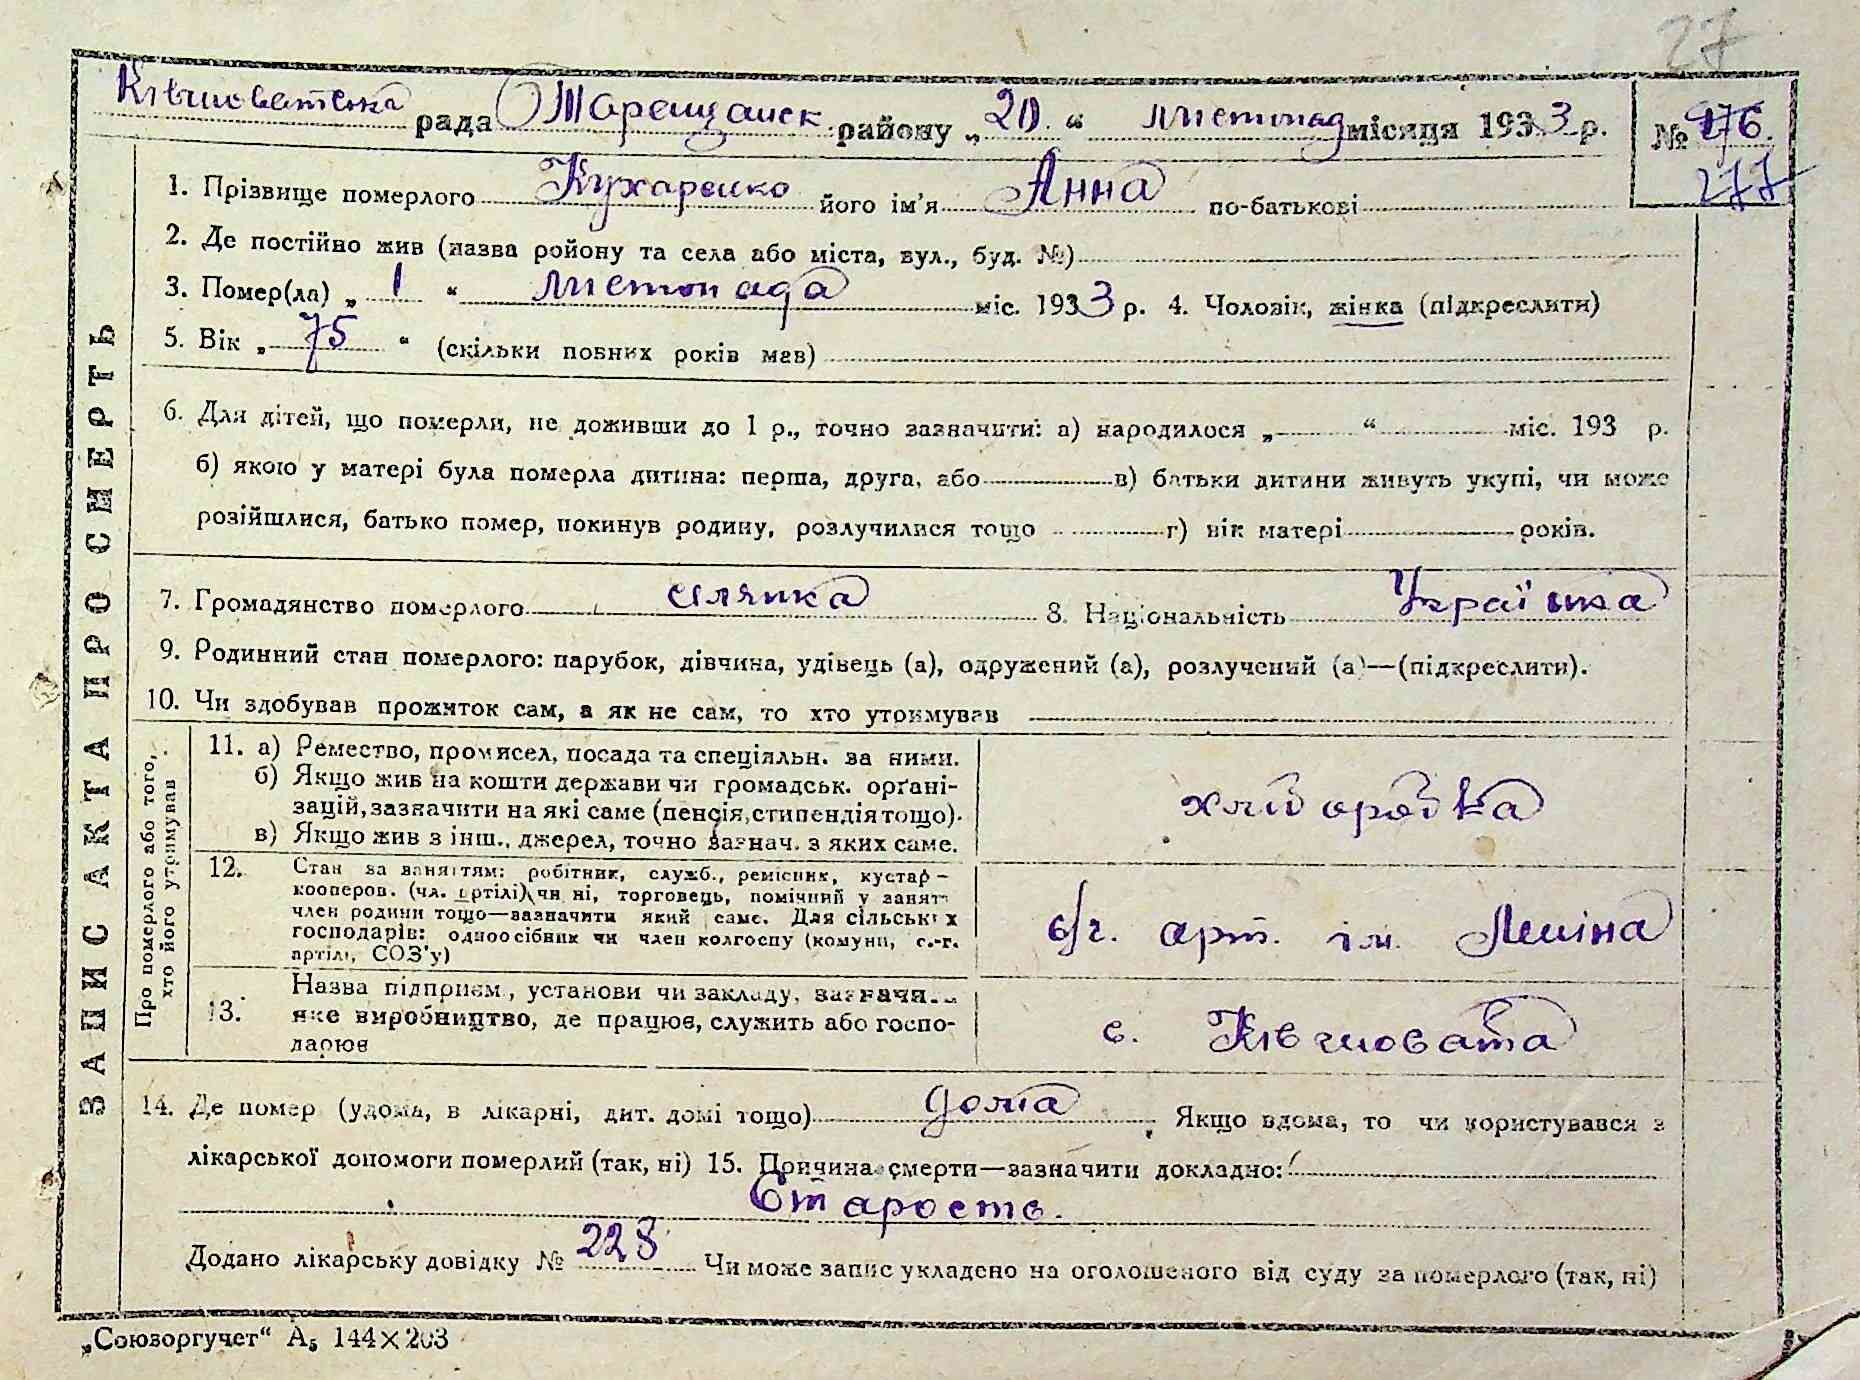 27
Ківшоватська рада Таращанск району „20“ листопад місяця 1933 р. № 176.
277
ЗАПИС АКТА ПРО СМЕРТЬ
1. Прізвище померлого Кухаренко його ім'я Анна по-батькові
2. Де постійно жив (назва ройону та села або міста, вул., буд. №)
3. Помер(ла) „1“ листопада міс. 1933 р. 4. Чоловік, жінка (підкреслити)
5. Вік „75“ (скільки повних років мав)
6. Для дітей, що померли, не доживши до 1 р., точно зазначити: а) народилося „ “ міс. 193 р.
б) якою у матері була померла дитина: перша, друга, або в) батьки дитини живуть укупі, чи може
розійшлися, батько помер, покинув родину, розлучилися тощо г) вік матері років.
7. Громадянство померлого 8. Національність Українка
9. Родинний стан померлого: парубок, дівчина, удівець (а), одружений (а), розлучений (а)—(підкреслити).
10. Чи здобував прожиток сам, а як не сам, то хто утримував
Про померлого або того,
хто його утримував
11. а) Ремество, промисел, посада та спеціяльн. за ними.
б) Якщо жив на кошти держави чи громадськ. орґані-
зацій, зазначити на які саме (пенсія, стипендія тощо).
в) Якщо жив з інш., джерел, точно зазнач. з яких саме.
12. Стан за заняттям: робітник, служб., ремісник, кустар-
кооперов. (чл. артілі) чи ні, торговець, помічний у занятт
член родини тощо—зазначити який саме. Для сільських
господарів: одноосібник чи член колгоспу (комуни, с.-г.
артілі, СОЗ'у)
с/г. арт. ім. Леніна
13. Назва підприєм., установи чи закладу, зазначи..
яке виробництво, де працює, служить або госпо-
дарює
с. Ківшовата
14. Де помер (удома, в лікарні, дит. домі тощо) дома Якщо вдома, то чи користувався з
лікарської допомоги померлий (так, ні) 15. Причина смерти—зазначити докладно:
Старость.
Додано лікарську довідку № 223 Чи може запис укладено на оголошеного від суду за померлого (так, ні)
„Союзоргучет“ А₅ 144×203